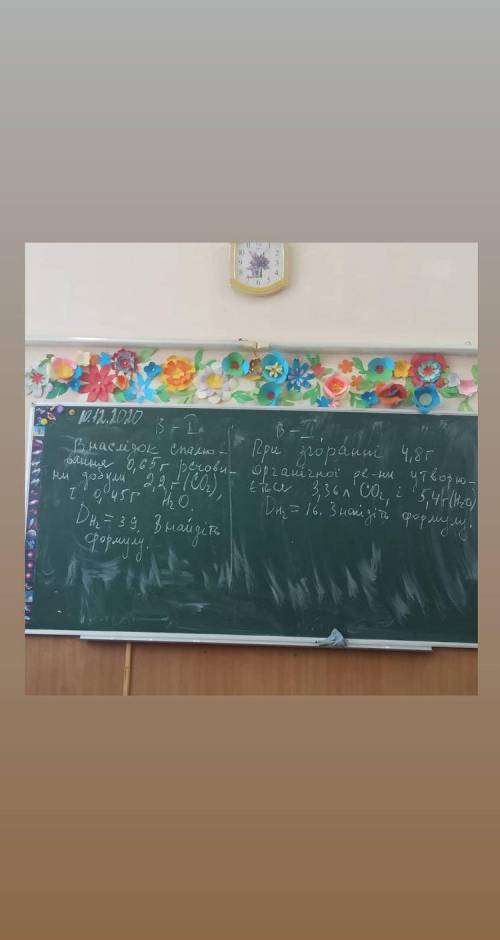 10.12.2020
В - I
Внаслідок спалю-
вання 0,65г речови-
ни добули 2,2г (CO₂),
і 0,45г H₂O.
D H₂ = 39. Знайдіть
формулу.
В - II
При згоранні 4,8г
органічної ре-ни утворю-
ється 3,36л CO₂, і 5,4г (H₂O)
D H₂ = 16. Знайдіть формулу.